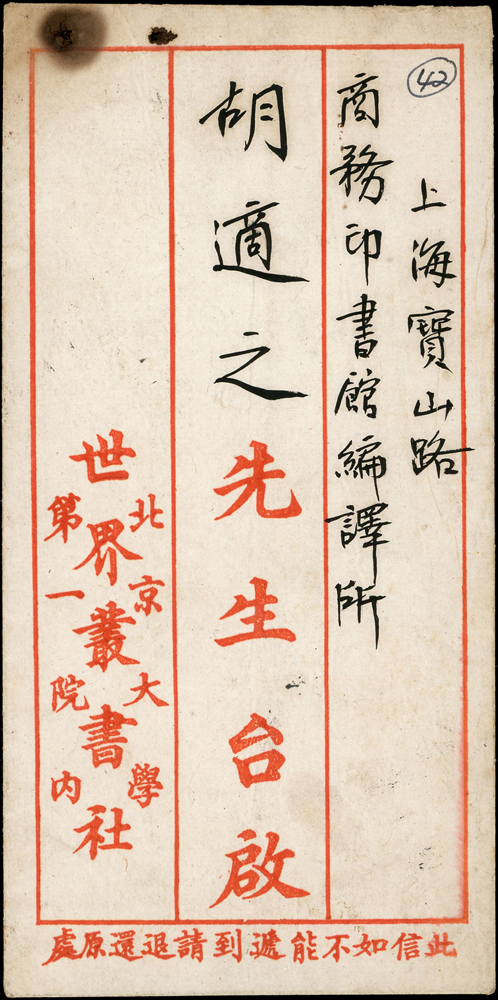 42
上海寶山路
商務印書館編譯所
胡適之先生台啟
北京大學
世界叢書社
第一院内
此信如不能遞到請退還原處